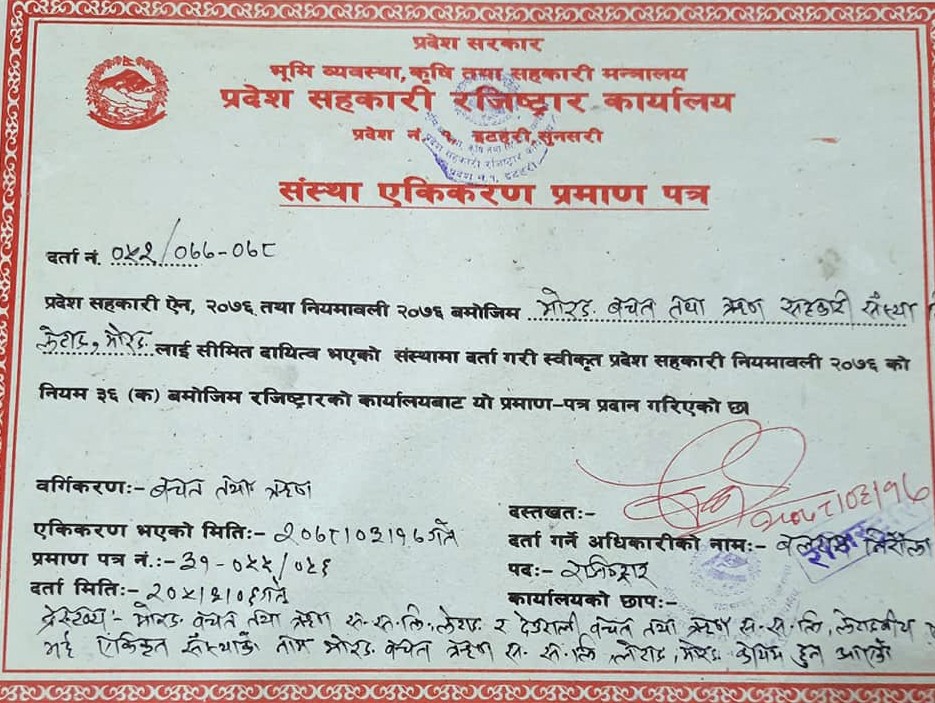 प्रदेश सरकार
भूमि व्यवस्था, कृषि तथा सहकारी मन्त्रालय
प्रदेश सहकारी रजिष्ट्रार कार्यालय
प्रदेश नं. १, इटहरी, सुनसरी
संस्था एकिकरण प्रमाण पत्र
दर्ता नं. ०५२/०७७-०७८
प्रदेश सहकारी ऐन, २०७६ तथा नियमावली २०७६ बमोजिम मोरङ बचत तथा ऋण सहकारी संस्था
मोरङ लाई सीमित दायित्व भएको संस्थामा दर्ता गरी स्वीकृत प्रदेश सहकारी नियमावली २०७६ को
नियम ३६ (क) बमोजिम रजिष्ट्रारको कार्यालयबाट यो प्रमाण-पत्र प्रदान गरिएको छ।
वर्गिकरण:- बचत तथा ऋण
दस्तखत:-
एकिकरण भएको मिति:- २०७८।०३।१७ गते
दर्ता गर्ने अधिकारीको नाम:-
प्रमाण पत्र नं.:- ३१-०५५/०५६
पद:- रजिष्ट्रार
दर्ता मिति:-
कार्यालयको छाप:-
मोरङ बचत तथा ऋण स. स. लि. र देउराली बचत तथा ऋण स. स. लि.
भई एकिकृत संस्थाको नाम मोरङ बचत ऋण स. स. लि. मोरङ कायम हुन आएको